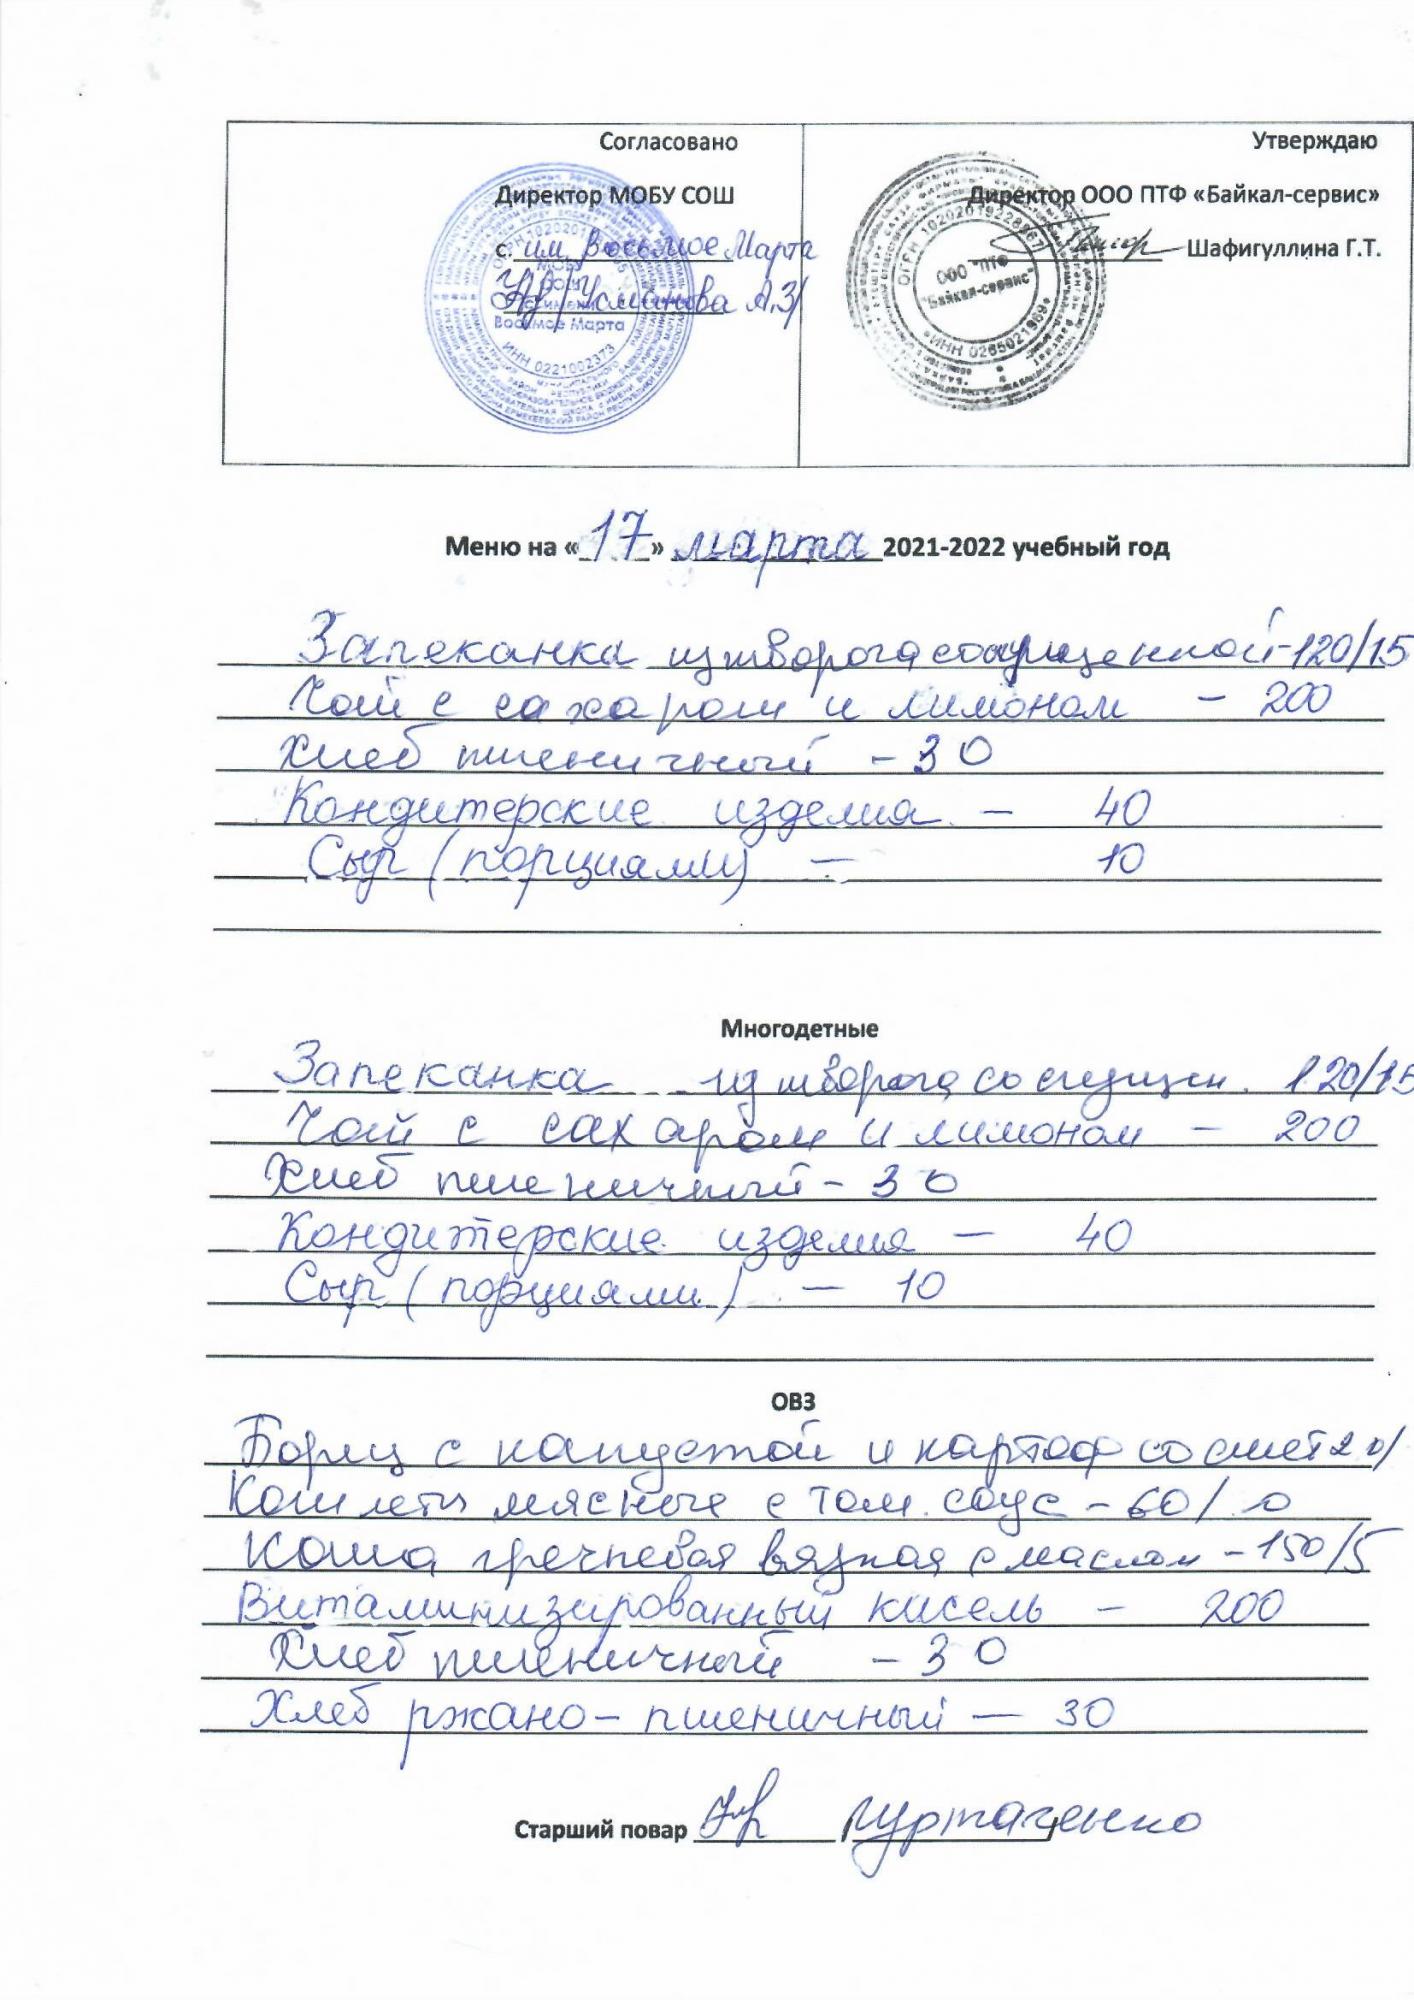 Согласовано
Директор МОБУ СОШ
с. им. Восьмое Марта
Усманова А.З/
Утверждаю
Директор ООО ПТФ «Байкал-сервис»
Шафигуллина Г.Т.
МОБУ
СОШ
с.имени
Восьмое Марта
ИНН 0221002373
ООО "ПТФ
"Байкал-сервис"
Меню на «17» марта 2021-2022 учебный год
Запеканка из творога со сгущенкой-120/15
Чай с сахаром и лимоном - 200
Хлеб пшеничный - 30
Кондитерские изделия - 40
Сыр (порциями) - 10
Многодетные
Запеканка из творога со сгущен. 120/15
Чай с сахаром и лимоном - 200
Хлеб пшеничный - 30
Кондитерские изделия - 40
Сыр (порциями) - 10
ОВЗ
Борщ с капустой и картоф со смет
Котлеты мясные с том. соус - 60/
Каша гречневая вязкая с маслом - 150/5
Витаминизированный кисель - 200
Хлеб пшеничный - 30
Хлеб ржано-пшеничный - 30
Старший повар